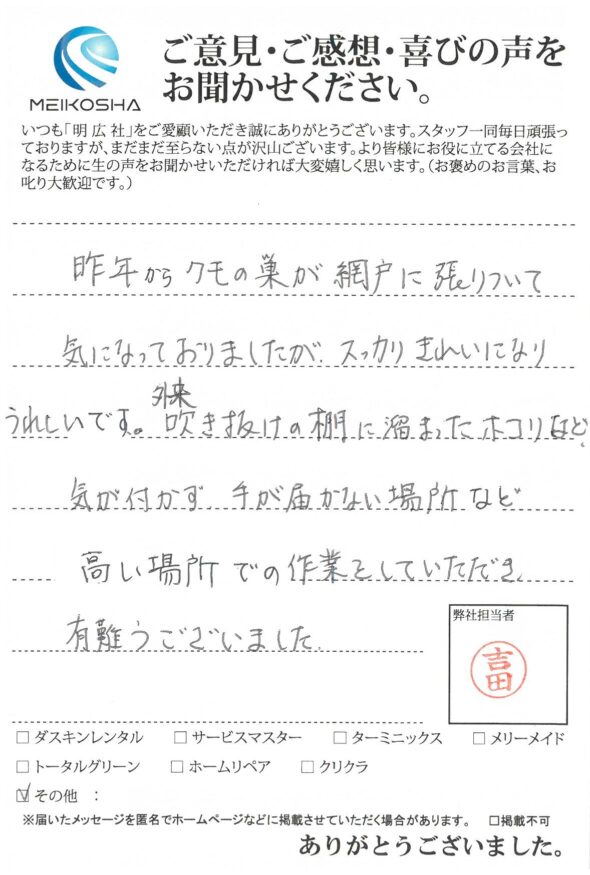 MEIKOSHA
ご意見・ご感想・喜びの声を
お聞かせください。
いつも「明広社」をご愛顧いただき誠にありがとうございます。スタッフ一同毎日頑張っ
ておりますが、まだまだ至らない点が沢山ございます。より皆様にお役に立てる会社に
なるために生の声をお聞かせいただければ大変嬉しく思います。(お褒めのお言葉、お
叱り大歓迎です。)
昨年からクモの巣が網戸に張りついて
気になっておりましたが、スッカリきれいになり
外来
うれしいです。吹き抜けの棚に溜まったホコリなど、
気が付かず 手が届かない場所など
高い場所での作業をしていただき
有難うございました。
弊社担当者
吉田
□ダスキンレンタル □サービスマスター □ターミニックス □メリーメイド
□トータルグリーン □ホームリペア □クリクラ
☑その他 :
※届いたメッセージを匿名でホームページなどに掲載させていただく場合があります。 □掲載不可
ありがとうございました。